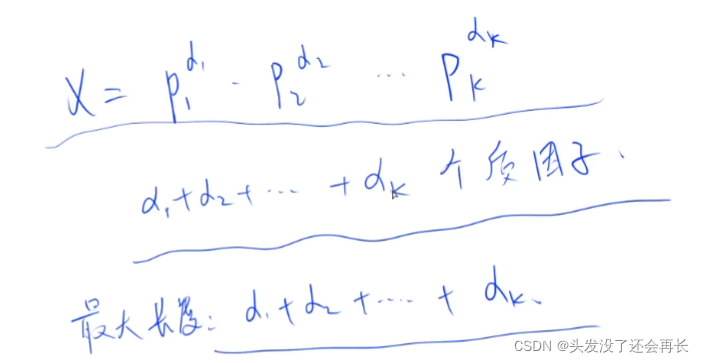 X = p₁^α₁ · p₂^α₂ ⋯ p_K^α_K
α₁+α₂+⋯ +α_K 个质因子.
最大长度: α₁+α₂+⋯⋯+ α_K.
CSDN @头发没了还会再长